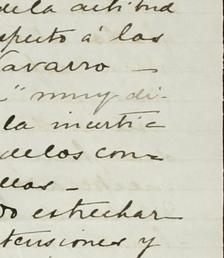 de la actitud
specto á los
Navarro —
" muy di-
la inertic
de los con-
llos —
do estrechar
tensiones y